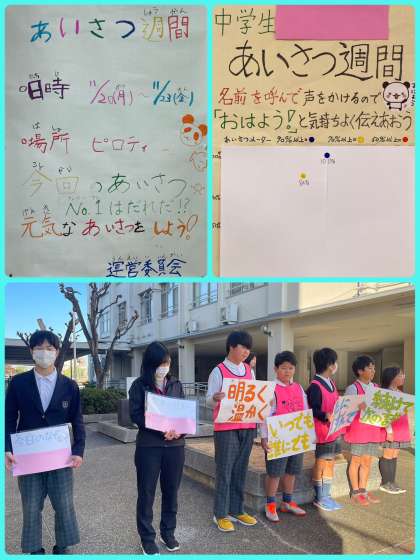 あいさつ週間
日時 11/20(月)~11/23(金)
場所 ピロティ
今回のあいさつ
No.1はだれだ!?
元気なあいさつをしよう!
運営委員会
中学生
あいさつ週間
名前を呼んで声をかけるので
「おはよう!」と気持ちよく伝えあおう
あいさつメーター 90%以上 70%以上
明るく
温かく
いつでも
誰にでも